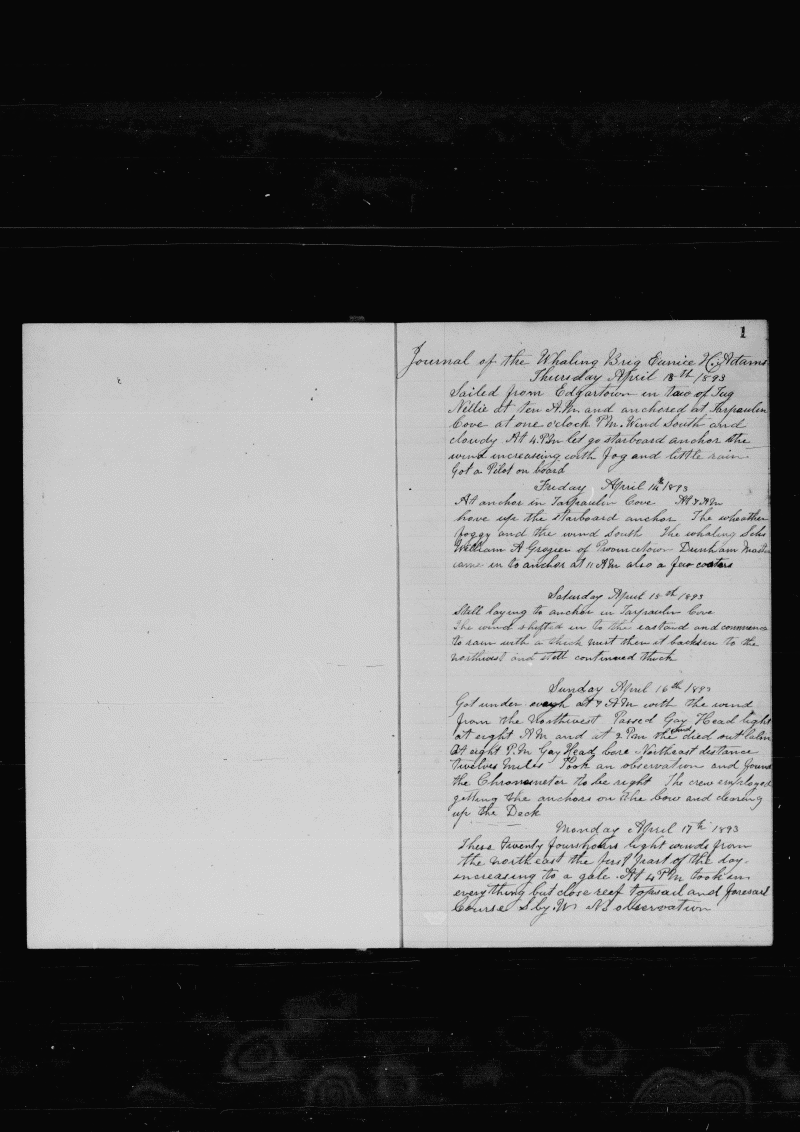 1
Journal of the Whaling Brig Eunice H. Adams
Thursday April 13th 1893
Sailed from Edgartown in tow of Tug
Nellie at ten A.M. and anchored at Tarpaulin
Cove at one o'clock P.M. Wind South and
cloudy At 4 P.M let go starboard anchor the
wind increasing with fog and little rain
Got a Pilot on board
Friday April 14th 1893
At anchor in Tarpaulin Cove At 8 AM
hove up the starboard anchor The wheather
foggy and the wind South The whaling Schr
William A Grozier of Provincetown Dunham Master
came in to anchor at 11 AM also a few coasters
Saturday April 15th 1893
Still laying to anchor in Tarpaulin Cove
The wind shifted in to the eastard and commence
to rain with a thick mist then it backs in to the
northwest and still continued thick
Sunday April 16th 1893
Got under weigh at A M with the wind
from the Northwest Passed Gay Head light
at eight A.M and at 2 P.m the wind died out calm
At eight P.M Gay Head bore Northeast distance
twelves miles Took an observation and found
the Chronometer to be right The crew employed
getting the anchors on the bow and clearing
up the Deck
Monday April 17th 1893
These twenty fours hours light winds from
the northeast the first part of the day
increasing to a gale At 4 P M took in
everything but close reef topsail and foresail
Course S by W No observation